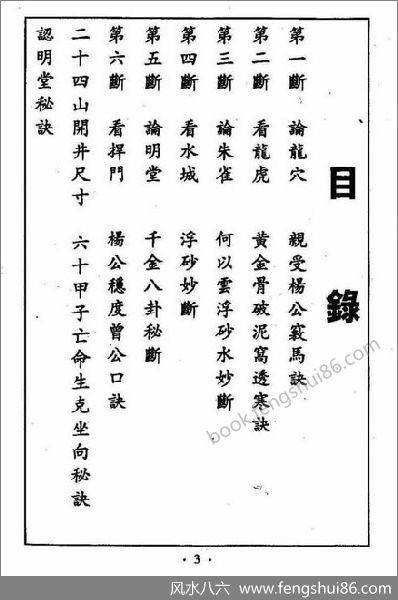 目錄
第一斷 論龍穴 親受楊公竅馬訣
第二斷 看龍虎 黃金骨破泥窩透寒訣
第三斷 論朱雀 何以雲浮砂水妙斷
第四斷 看水城 浮砂妙斷
第五斷 論明堂 千金八卦秘斷
第六斷 看捍門 楊公穩度曾公口訣
二十四山開井尺寸 六十甲子亡命生克坐向秘訣
認明堂秘訣
book.fengshui86.com
·3·
风水八六 www.fengshui86.com